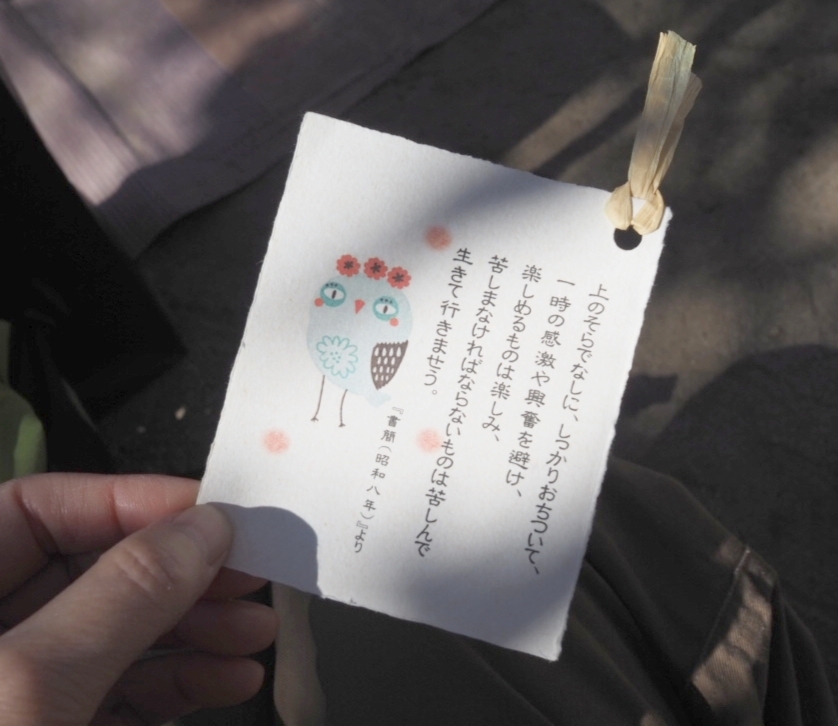 上のそらでなしに、しっかりおちついて、
一時の感激や興奮を避け、
楽しめるものは楽しみ、
苦しまなければならないものは苦しんで
生きて行きませう。
『書簡（昭和八年）』より